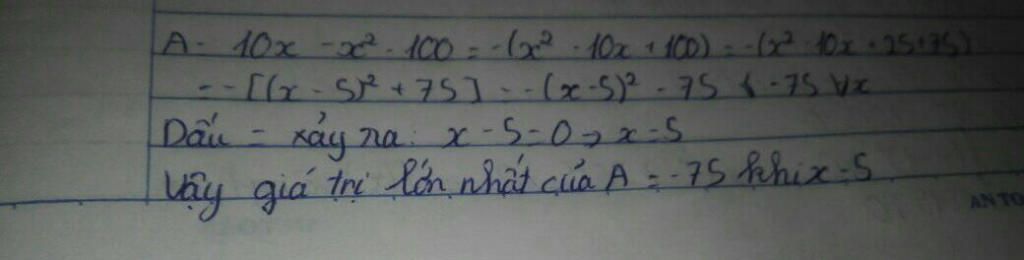 A = 10x - x² - 100 = -(x² - 10x + 100) = -(x² - 10x + 25 + 75)
= -[(x - 5)² + 75] = -(x - 5)² - 75 ≤ -75 ∀x
Dấu = xảy ra: x - 5 = 0 => x = 5
Vậy giá trị lớn nhất của A = -75 khi x = 5
AN TO